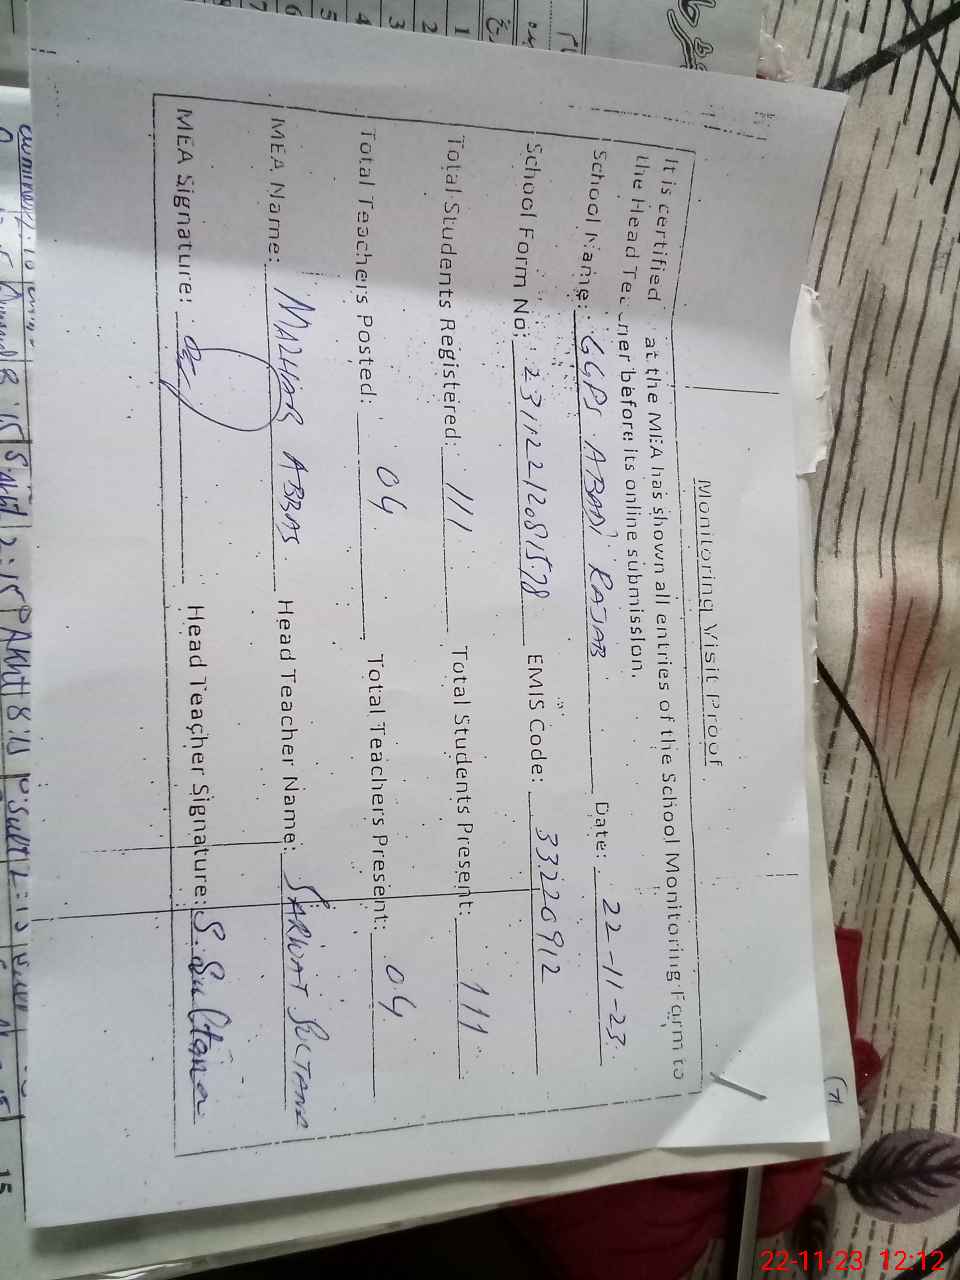 Monitoring Visit Proof
It is certified at the MEA has shown all entries of the School Monitoring Form to
the Head before its online submission.
School Name: GGPS ABADI RAJAB Date: 22-11-23
School Form No: 23112212081578 EMIS Code: 33220912
Total Students Registered: 111 Total Students Present: 111
Total Teachers Posted: 04 Total Teachers Present: 04
MEA Name: MAZHAR ABBAS Head Teacher Name: SARWAT SULTANA
MEA Signature: Head Teacher Signature: S. Sultana
1
2
3
4
5
6
7
15
22-11-23 12:12